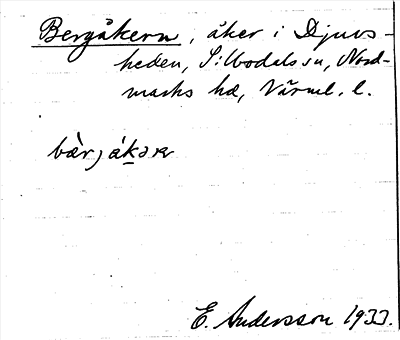 Bergåkern, åker i Djurs-
heden, Silbodals sn, Nord-
marks hd, Värml. l.
bær, åkəɴ
E. Andersson 1933.